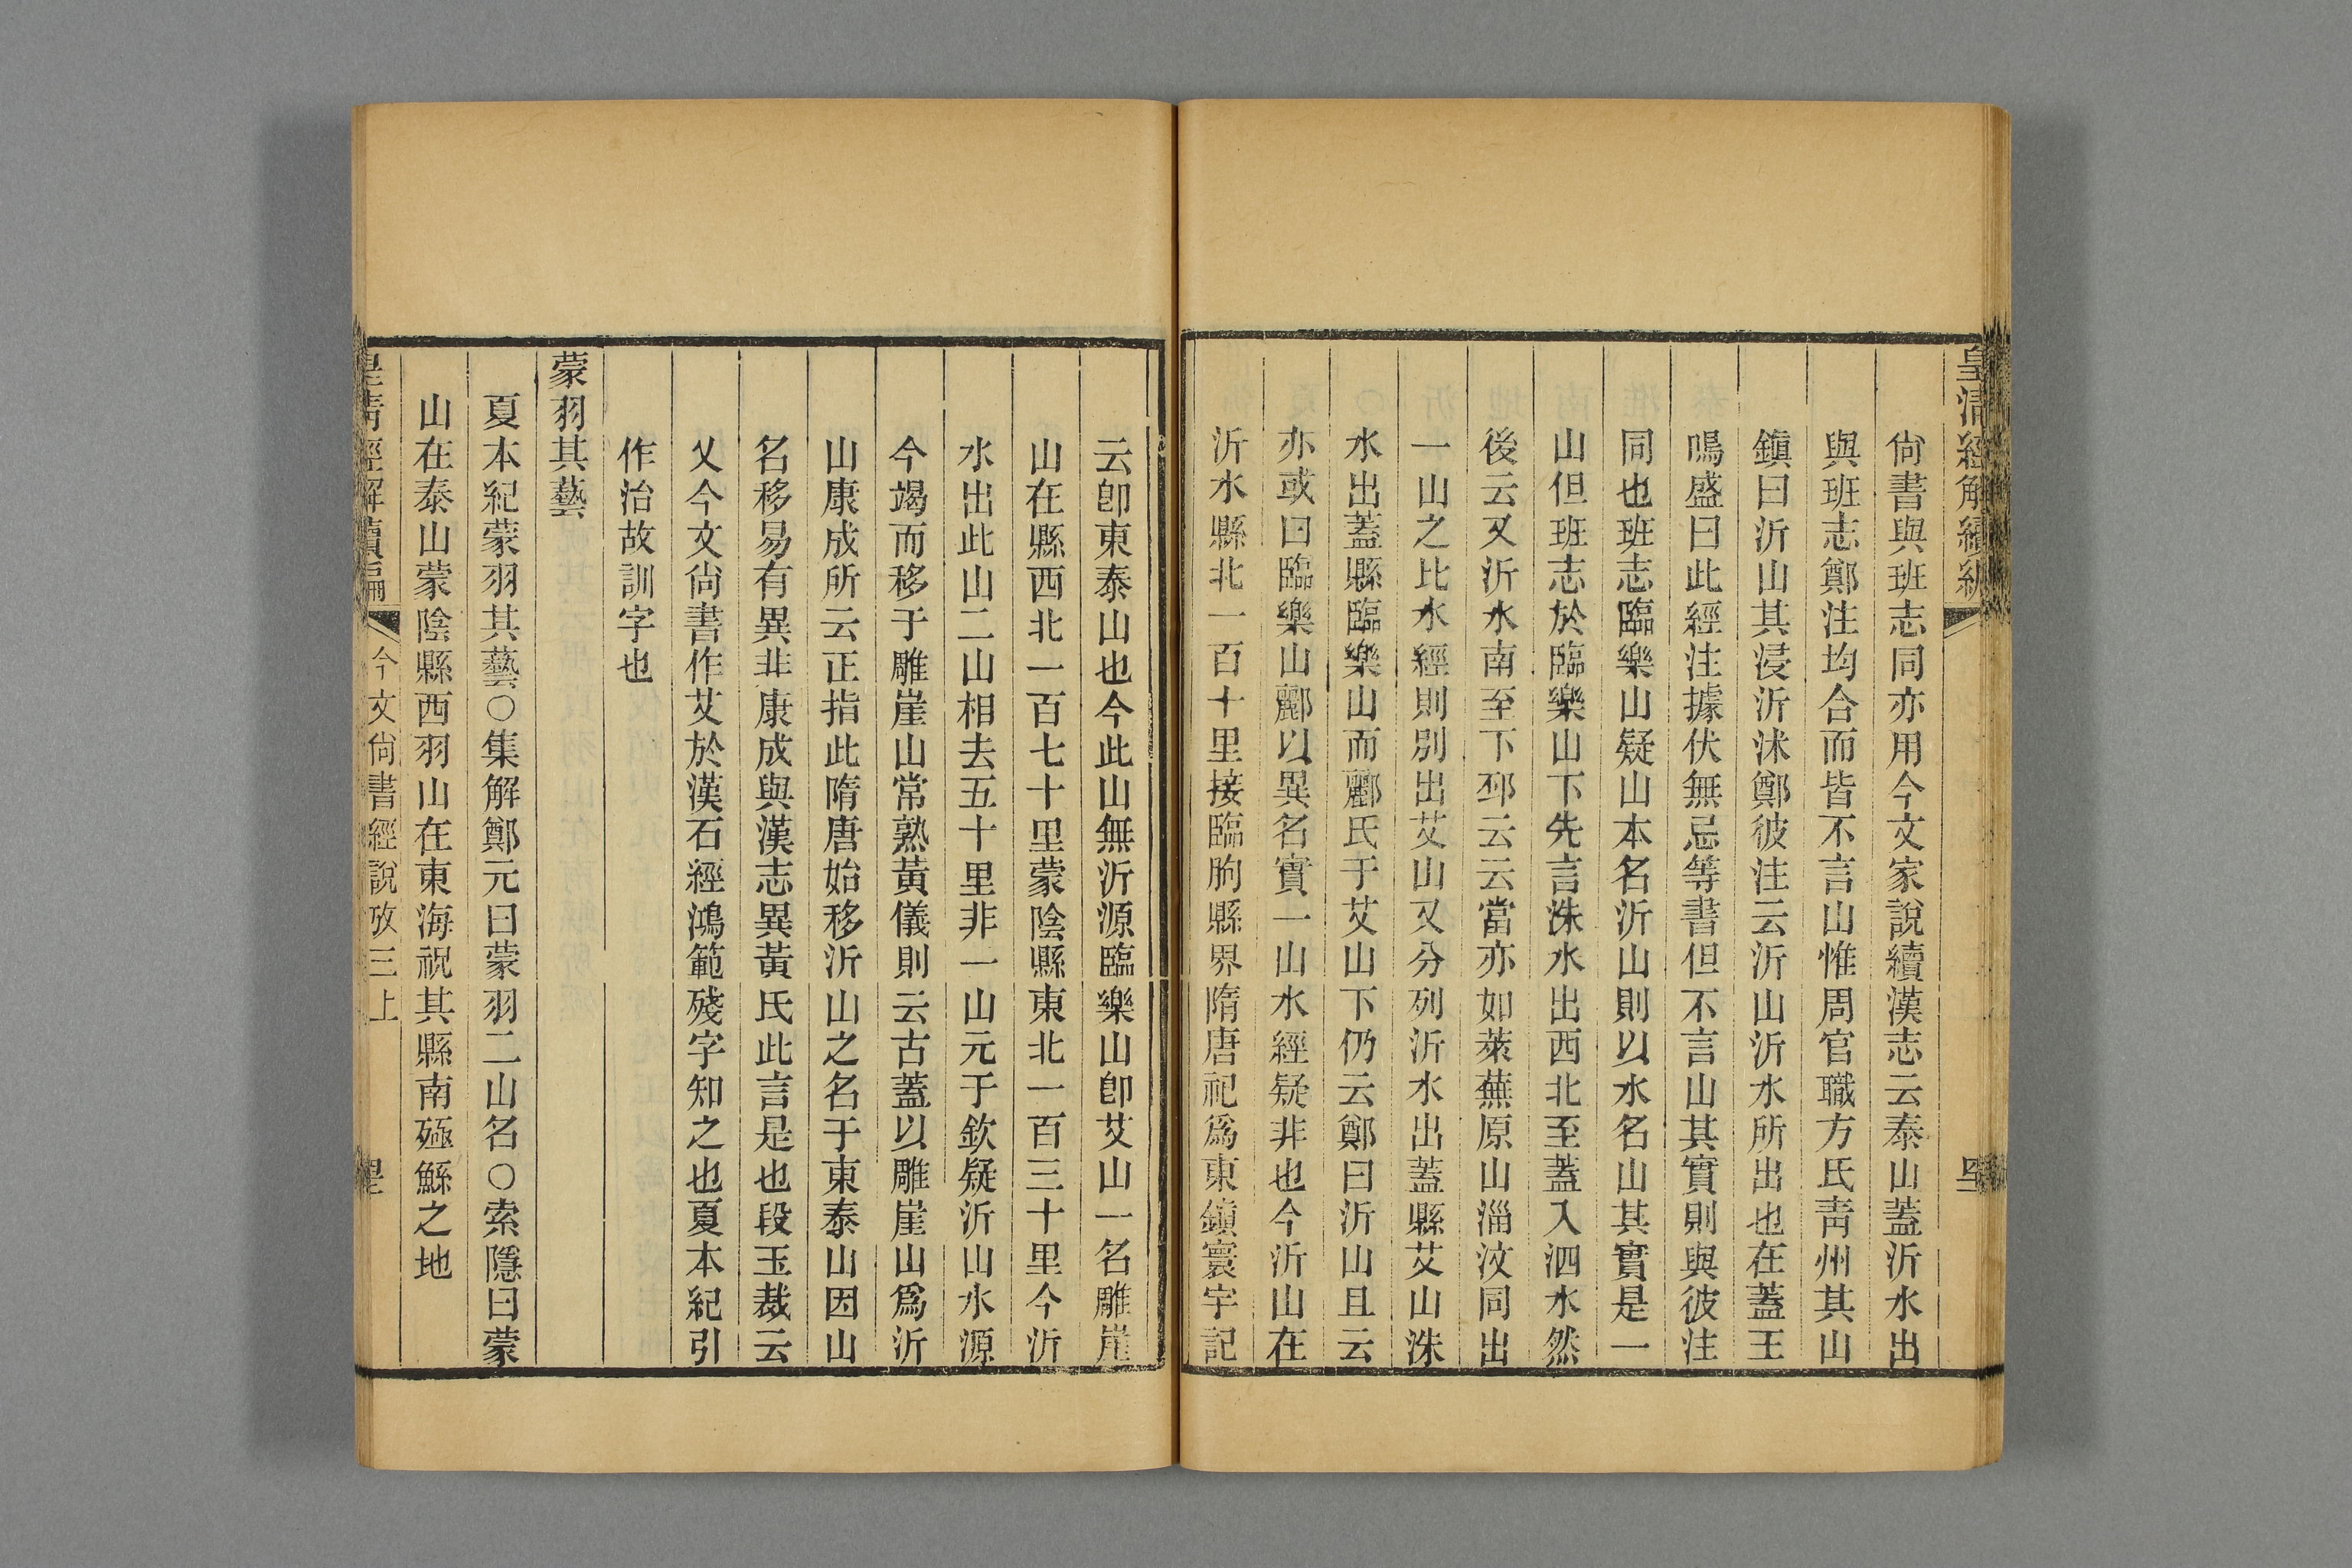 皇清經解續編
尙書與班志同亦用今文家說續漢志云泰山蓋沂水出
與班志鄭注均合而皆不言山惟周官職方氏靑州其山
鎮曰沂山其浸沂沭鄭彼注云沂山沂水所出也在蓋王
鳴盛曰此經注據伏無忌等書但不言山其實則與彼注
同也班志臨樂山疑山本名沂山則以水名山其實是一
山但班志於臨樂山下先言洙水出西北至蓋入泗水然
後云又沂水南至下邳云云當亦如萊蕪原山淄汶同出
一山之比水經則別出艾山又分列沂水出蓋縣艾山洙
水出蓋縣臨樂山而酈氏于艾山下仍云鄭曰沂山且云
亦或曰臨樂山酈以異名實一山水經疑非也今沂山在
沂水縣北一百十里接臨朐縣界隋唐祀爲東鎮寰宇記
云卽東泰山也今此山無沂源臨樂山卽艾山一名雕崖
山在縣西北一百七十里蒙陰縣東北一百三十里今沂
水出此山二山相去五十里非一山元于欽疑沂山水源
今竭而移于雕崖山常熟黃儀則云古蓋以雕崖山爲沂
山康成所云正指此隋唐始移沂山之名于東泰山因山
名移易有異非康成與漢志異黃氏此言是也段玉裁云
乂今文尙書作艾於漢石經鴻範殘字知之也夏本紀引
作治故訓字也
蒙羽其藝
夏本紀蒙羽其藝○集解鄭元曰蒙羽二山名○索隱曰蒙
山在泰山蒙陰縣西羽山在東海祝其縣南殛鯀之地
皇淸經解續編
今文尙書經說攷三上